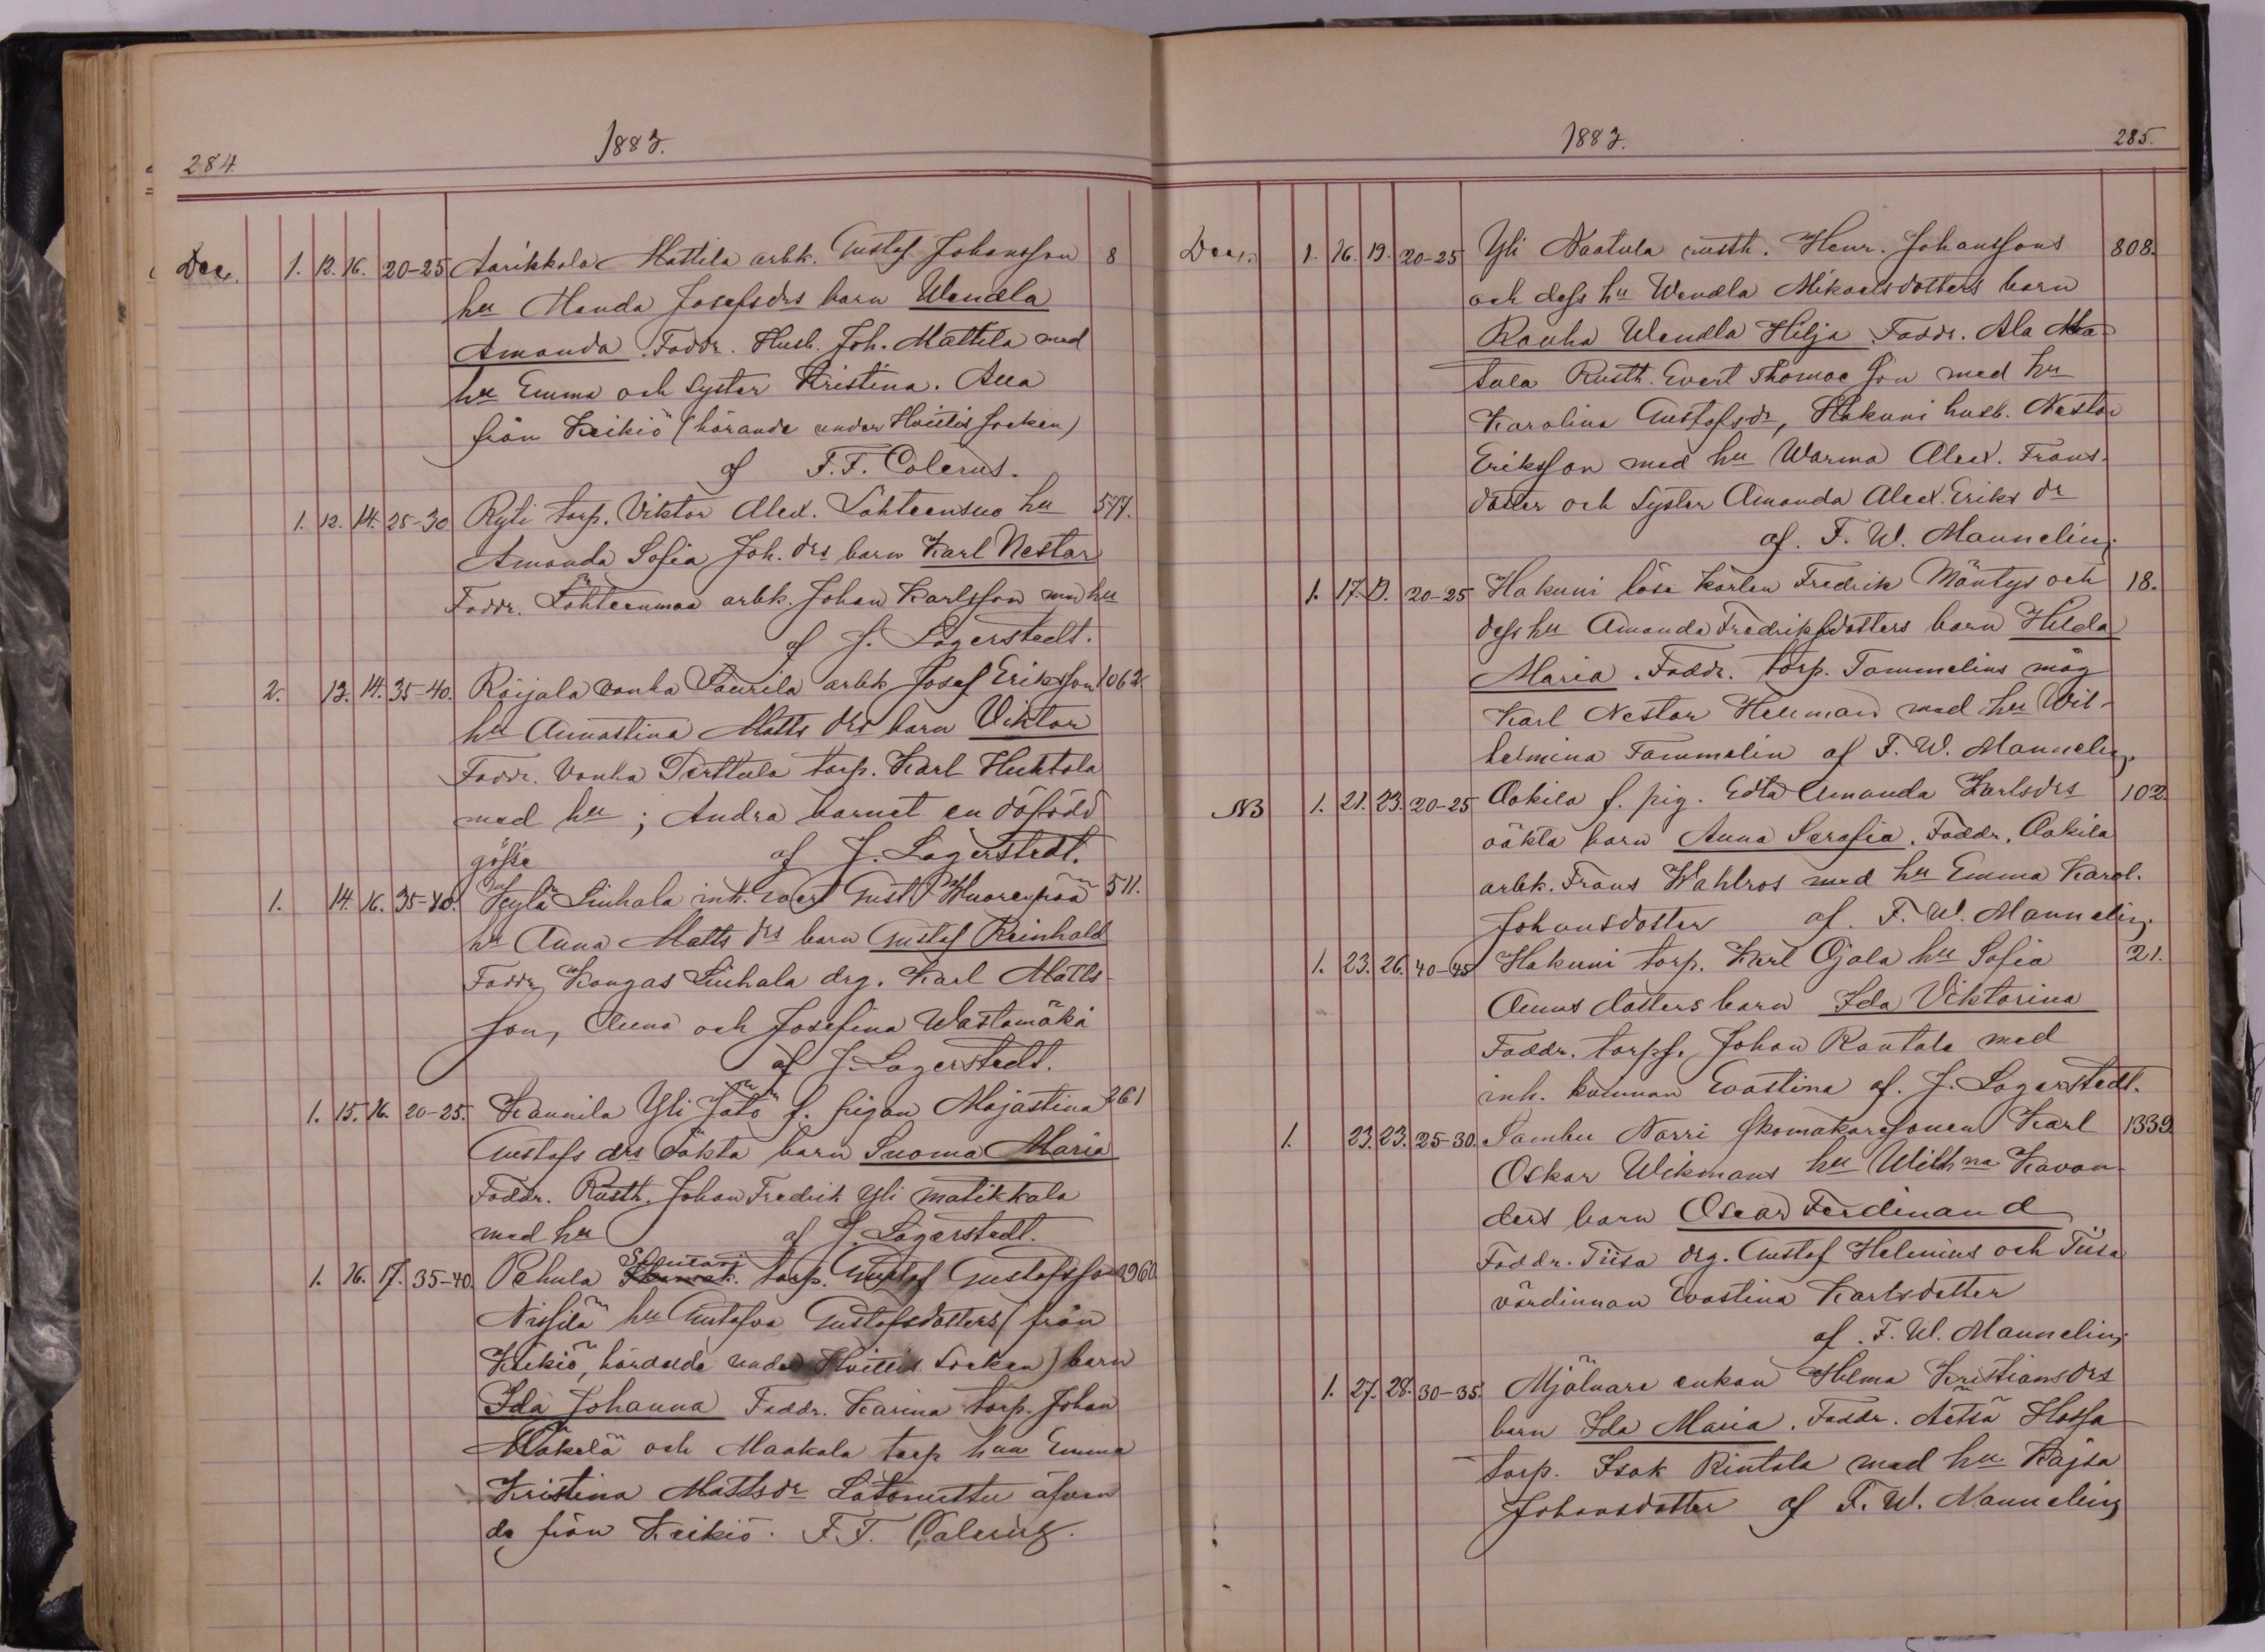 284.
1883.
Dec. 1. 12. 16. 20-25 Aarikkala Mattila arbk. Gustaf Johansson 8
hu Manda Josefsdrs barn Wendla
Amanda. Faddr. Husb. Joh. Mattila med
hu Emma och Syster Kristina. Alla
från Keikiö (hörande under Hvittis socken)
af F. F. Colerus.
1. 12. 14. 25-30 Ryli torp. Viktor Alex. Lähteensuo hu 577.
Amanda Sofia Joh. drs barn Karl Nestor
Faddr. Lähteenmaa arbk. Johan Karlsson med hu
af J. Lagerstedt.
2. 13. 14. 35-40. Räijala vanha Laurila arbk Josef Eriksson 1062
hu Annastina Matts drs barn Viktor
Faddr. Vanha Perttula torp. Karl Huhtala
med hu; Andra barnet en dödfödd
gosse af J. Lagerstedt.
1. 14. 16. 35-40. Liuhala inh. Gust 511.
hu Anna Matts drs barn Gustaf Reinhold
Faddr. Kangas Liuhala drg. Karl Matts-
son, Anna och Josefina Wastamäki
af J. Lagerstedt.
1. 15. 16. 20-25. Kannila Yli f. pigan Majastina 261
Gustafs drs oäkta barn Suoma Maria
Faddr. Rusth. Johan Fredrik Yli matikkala
med hu af J. Lagerstedt.
1. 16. 17. 35-40. Pehula torp. Gustaf Gustafsson 960
Nissilä hu Gustafva Gustafsdotters (från
Keikiö, hörande under Hvittis Socken) barn
Ida Johanna Faddr. Karina torp. Johan
Mäkelä och Maakala torp hun Emma
Kristina Mattsdr äfven
da från Keikiö. F. F. Colerus.
1883.
285.
Dec. 1. 16. 19. 20-25 Yli Naatula rusth. Henr. Johanssons 808.
och dess hu Wendla Mikaelsdotters barn
Rauha Wendla Hilja. Faddr. Ala Naa-
tula Rusth. Evert Thomasson med hu
Karolina Gustafsdr, Hakuni husb. Nestor
Eriksson med hu Warma Alex. Frans-
dotter och Syster Amanda Alex. Eriks dr
af. F. W. Mannelin.
1. 17. 19. 20-25 Hakuni löse karlen Fredrik Mäntys och 18.
dess hu Amanda Fredriksdotters barn Hilda
Maria. Faddr. torp. Tammelins måg
Karl Nestor Helman med hu Wil-
helmina Tammelin af F. W. Mannelin.
NB 1. 21. 23. 20-25 Aakila f. pig. Edla Amanda Karlsdrs 102.
oäkta barn Anna Serafia. Faddr. Aakila
arbk. Frans Wahlros med hu Emma Karol.
Johansdotter af. F. W. Mannelin.
1. 23. 26. 40-45 Hakuni torp. Karl Ojala hu Sofia 21.
dotters barn Ida Viktorina
Faddr. torpf. Johan Rantala med
inh. kvinnan Evastina af. J. Lagerstedt.
1. 23. 23. 25-30. Sambu Norri skomakaresonen Karl 1339
Oskar Wikmans hu Wilh na Kavan-
ders barn Oscar Ferdinand
Faddr. Tiisa drg. Gustaf Helenius och Tiisa
värdinnan Evastina Karlsdotter
af. F. W. Mannelin.
1. 27. 28. 30-35. Mjölnare enkan Hilma Kristiansdrs
barn Ida Maria. Faddr. Äetsä Hossa
torp. Isak Rintala med hu Kajsa
Johansdotter af F. W. Mannelin